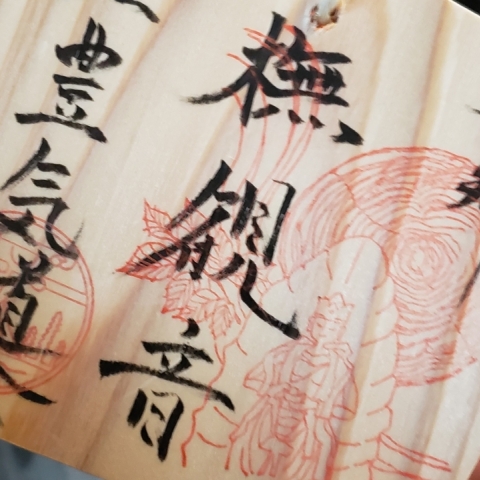 撫観音
豊気道